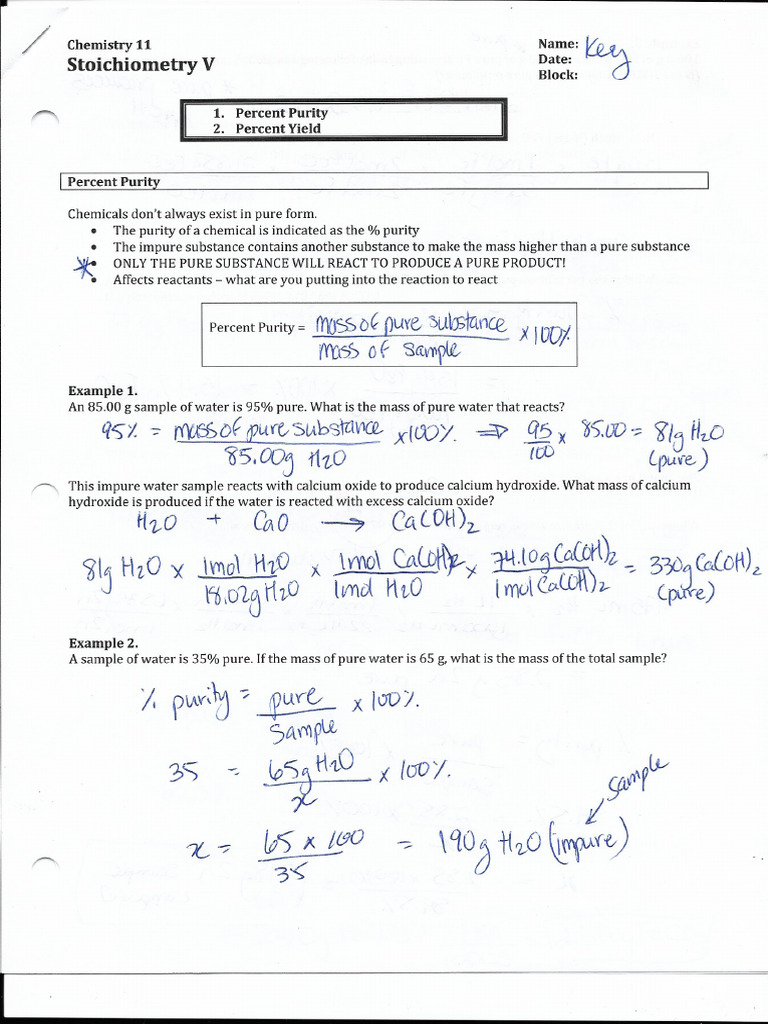 Chemistry 11
Stoichiometry V
Name: Key
Date:
Block:
1. Percent Purity
2. Percent Yield
Percent Purity
Chemicals don't always exist in pure form.
• The purity of a chemical is indicated as the % purity
• The impure substance contains another substance to make the mass higher than a pure substance
• ONLY THE PURE SUBSTANCE WILL REACT TO PRODUCE A PURE PRODUCT!
• Affects reactants – what are you putting into the reaction to react
Percent Purity = mass of pure substance / mass of sample × 100%
Example 1.
An 85.00 g sample of water is 95% pure. What is the mass of pure water that reacts?
95% = mass of pure substance / 85.00g H2O × 100% ⇒ 95/100 × 85.00 = 81g H2O
(pure)
This impure water sample reacts with calcium oxide to produce calcium hydroxide. What mass of calcium
hydroxide is produced if the water is reacted with excess calcium oxide?
H2O + CaO → Ca(OH)2
81g H2O × 1mol H2O / 18.02g H2O × 1mol Ca(OH)2 / 1mol H2O × 74.10g Ca(OH)2 / 1mol Ca(OH)2 = 330g Ca(OH)2
(pure)
Example 2.
A sample of water is 35% pure. If the mass of pure water is 65 g, what is the mass of the total sample?
% purity = pure / sample × 100%.
35 = 65g H2O / x × 100%.
sample
x = 65 × 100 / 35 = 190g H2O (impure)